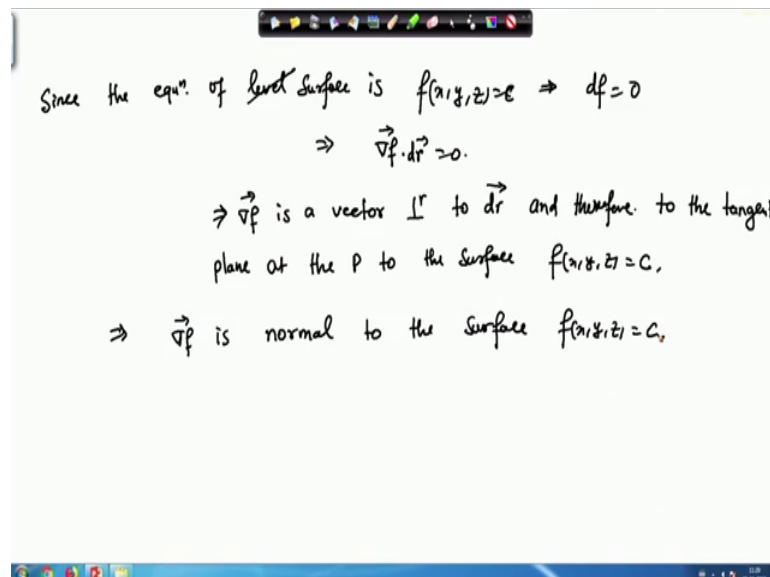 Since the equⁿ. of level surface is f(x,y,z)=c ⇒ df=0
⇒ ∇f⃗·dr⃗=0.
⇒ ∇f⃗ is a vector ⊥ʳ to dr⃗ and therefore. to the tangent
plane at the P to the surface f(x,y,z)=C,
⇒ ∇f⃗ is normal to the surface f(x,y,z)=C.
11:29